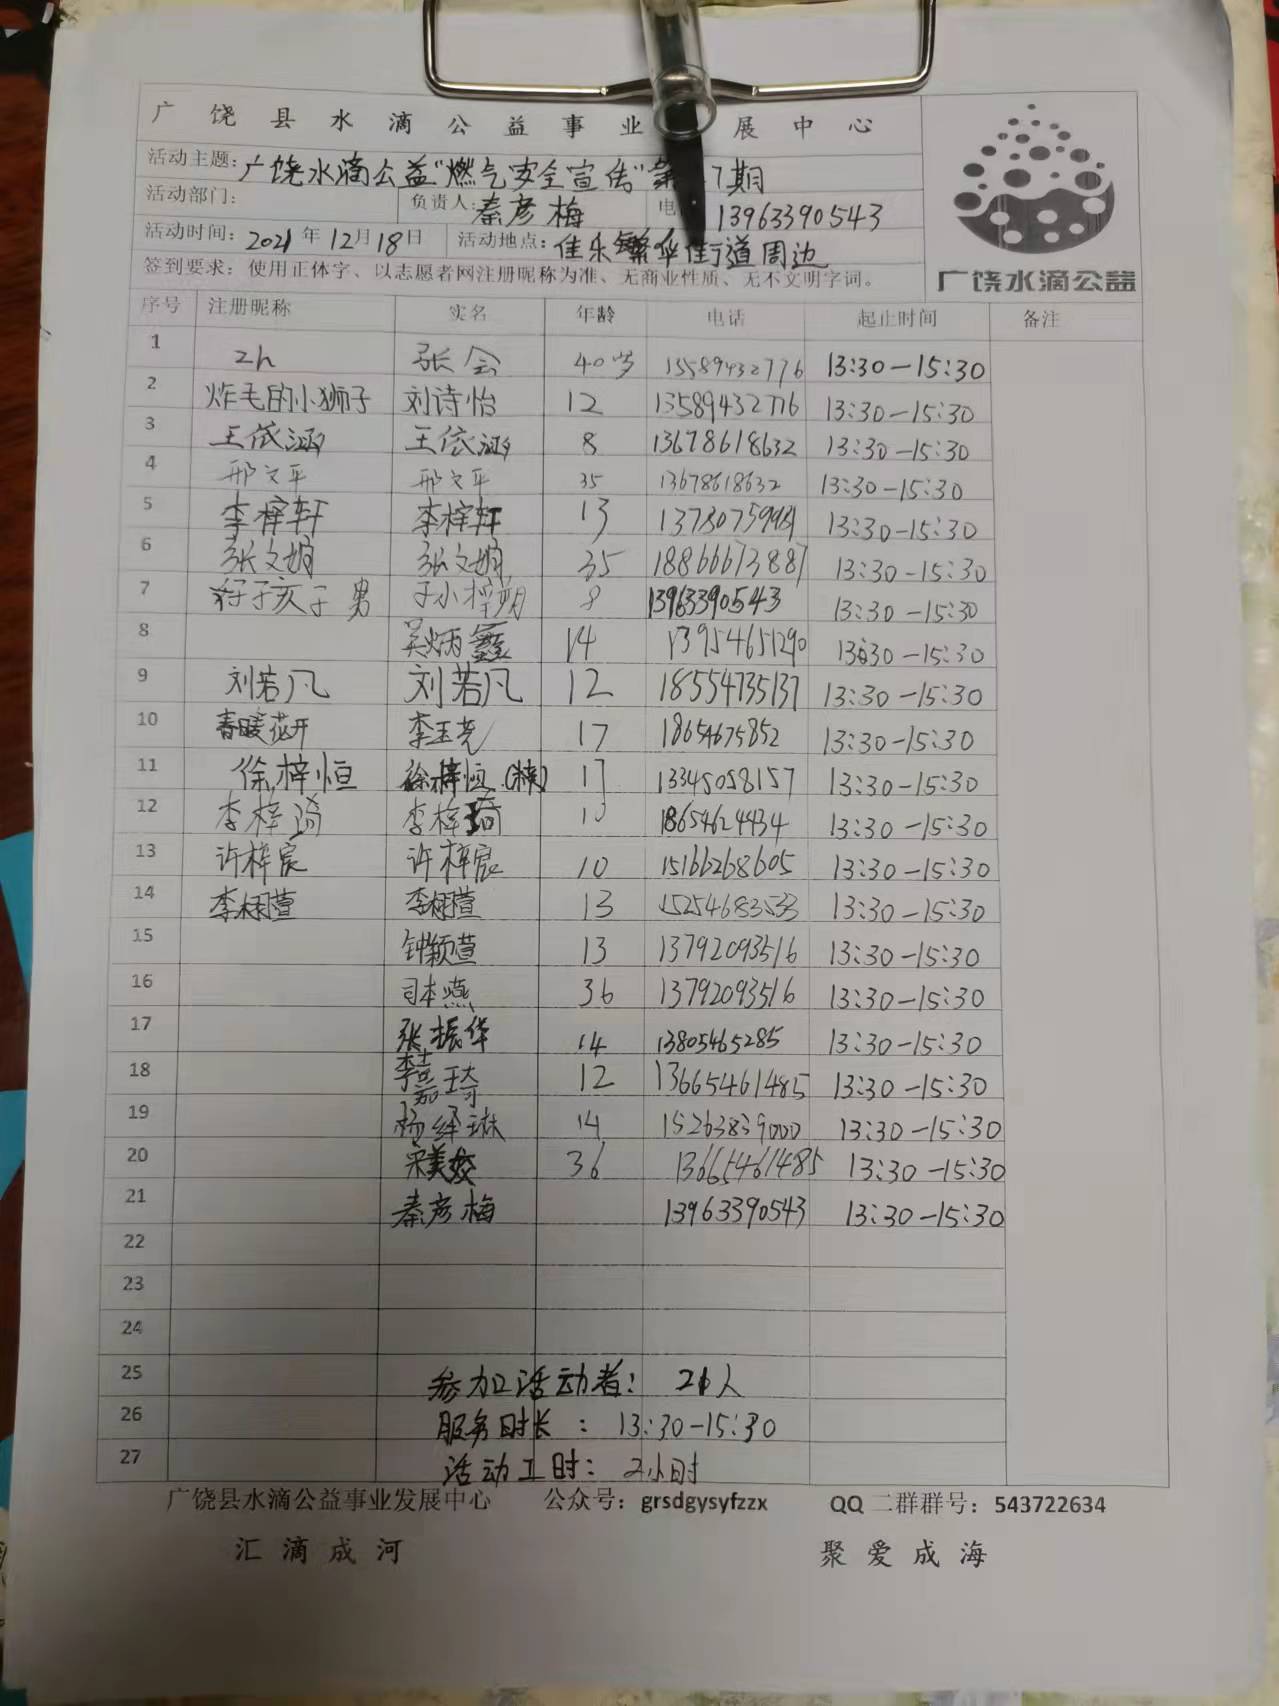 广饶县水滴公益事业 展中心
活动主题: 广饶水滴公益"燃气安全宣传"第 7期
活动部门: 负责人: 秦彦梅 电 13963390543
活动时间: 2021年12月18日 活动地点: 佳乐繁华街道周边
签到要求: 使用正体字、以志愿者网注册昵称为准、无商业性质、无不文明字词。
广饶水滴公益
序号 注册昵称 实名 年龄 电话 起止时间 备注
1 zh 张会 40岁 15589432776 13:30-15:30
2 炸毛的小狮子 刘诗怡 12 13589432776 13:30-15:30
3 王依涵 王依涵 8 13678618632 13:30-15:30
4 邢文平 邢文平 35 13678618632 13:30-15:30
5 李梓轩 李梓轩 13 13:30-15:30
6 张文娟 张文娟 35 18866673887 13:30-15:30
7 男 8 13963390543 13:30-15:30
8 吴炳鑫 14 13954651290 13:30-15:30
9 刘若凡 刘若凡 12 18554735137 13:30-15:30
10 春暖花开 李玉尧 17 18654675852 13:30-15:30
11 徐梓恒 徐梓恒 13345058157 13:30-15:30
12 李梓琦 李梓琦 10 18654624434 13:30-15:30
13 许梓宸 许梓宸 10 15166268605 13:30-15:30
14 李栩萱 李栩萱 13 15254683533 13:30-15:30
15 钟颖萱 13 13792093516 13:30-15:30
16 司本燕 36 13792093516 13:30-15:30
17 张振华 14 13805465285 13:30-15:30
18 李嘉琦 12 13665461485 13:30-15:30
19 杨绎琳 14 15263839000 13:30-15:30
20 宋美姣 36 13665461485 13:30-15:30
21 秦彦梅 13963390543 13:30-15:30
22
23
24
25 参加活动者: 21人
26 服务时长: 13:30-15:30
27 活动工时: 2小时
广饶县水滴公益事业发展中心 公众号: grsdgysyfzzx QQ二群群号: 543722634
汇滴成河 聚爱成海